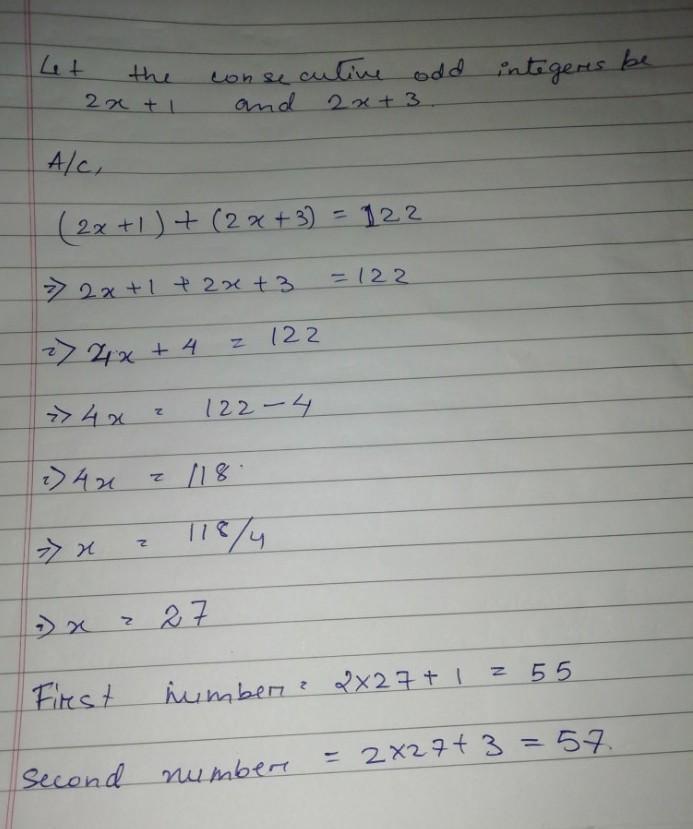 Let the consecutive odd integers be
2x + 1 and 2x + 3.
A/C,
(2x + 1) + (2x + 3) = 122
⇒ 2x + 1 + 2x + 3 = 122
⇒ 4x + 4 = 122
⇒ 4x = 122 - 4
⇒ 4x = 118
⇒ x = 118/4
⇒ x = 27
First number = 2×27 + 1 = 55
Second number = 2×27 + 3 = 57.